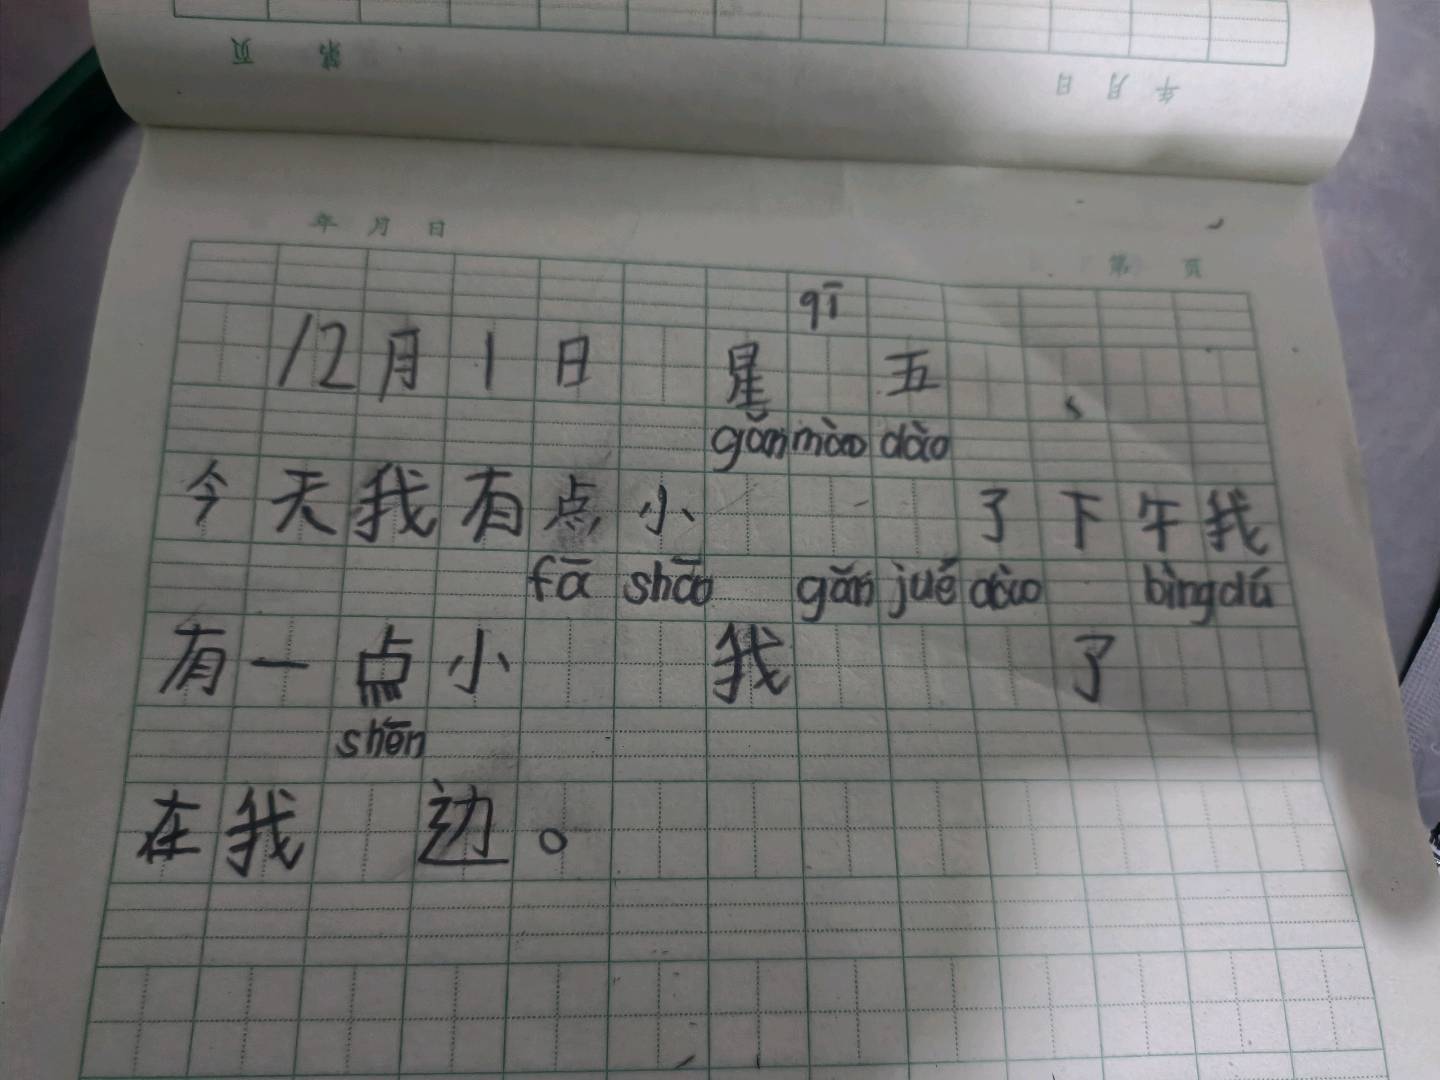 页 第
年 月 日
年 月 日
第 页
qī
12月1日 星 五
gǎn mào dào
今天我有点小 了下午我
fā shāo gǎn jué dào bìng dú
有一点小 我 了
shēn
在我 边。